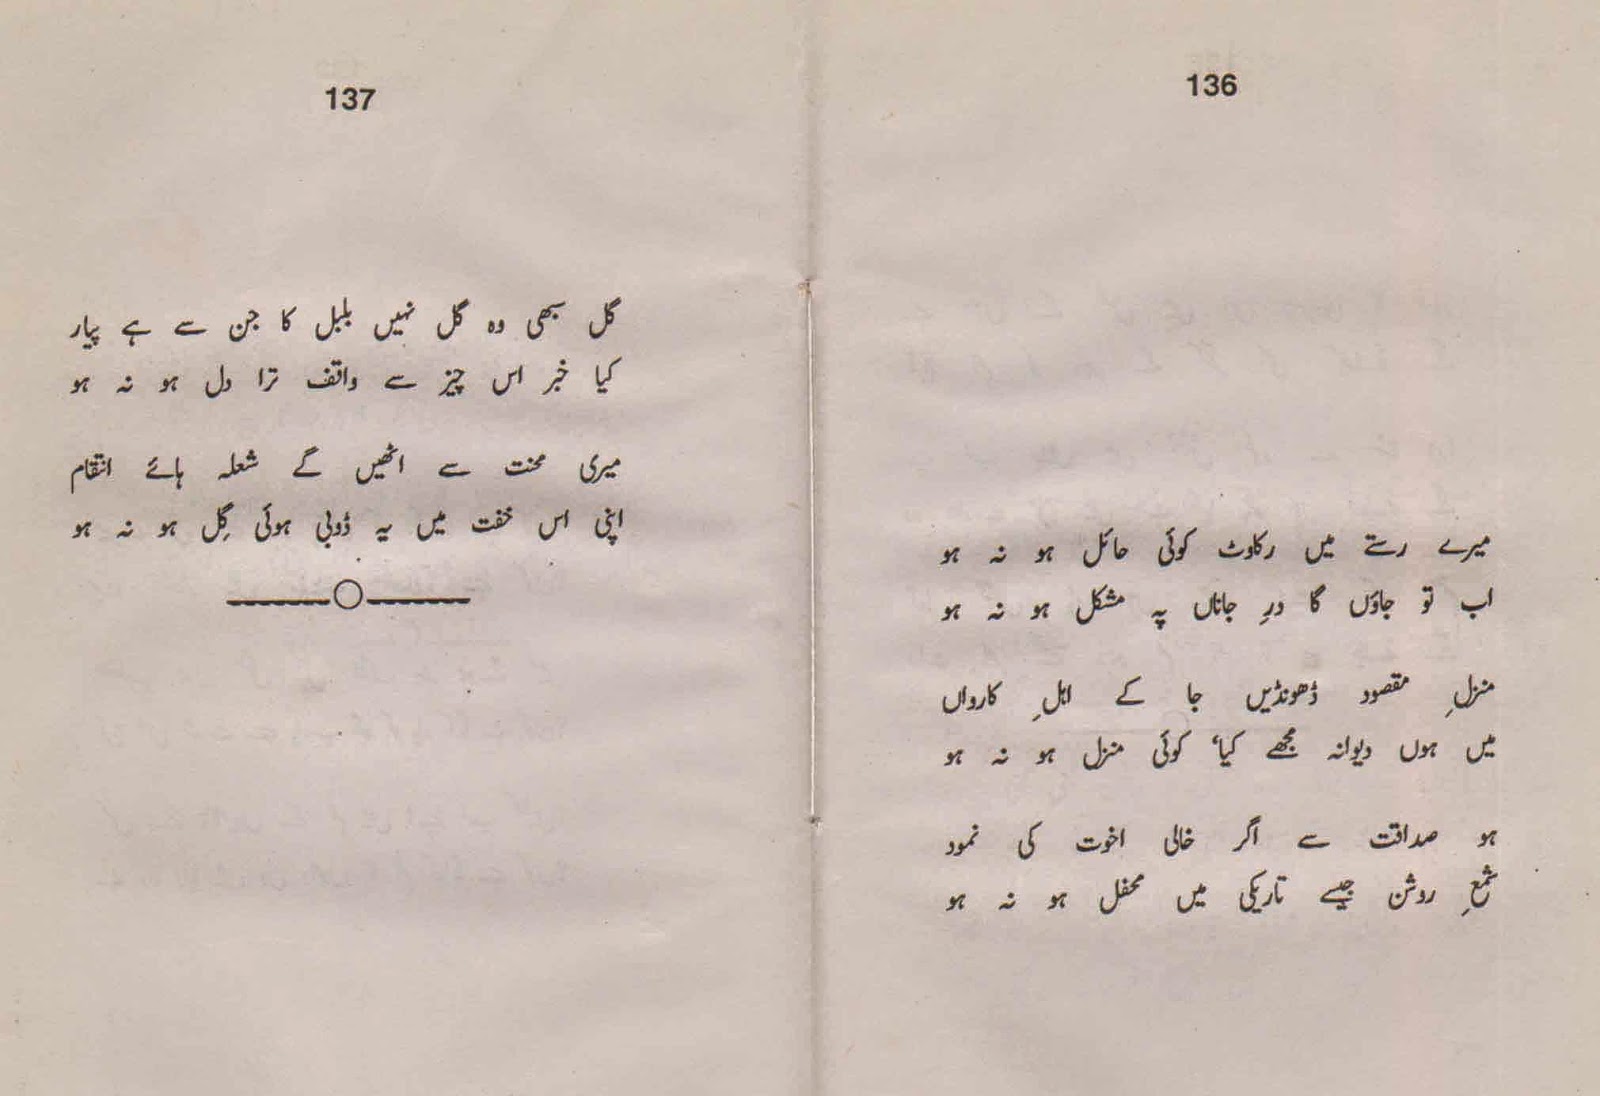 136
میرے رستے میں رکاوٹ کوئی حائل ہو نہ ہو
اب تو جاؤں گا درِ جاناں پہ مشکل ہو نہ ہو
منزلِ مقصود ڈھونڈیں جا کے اہلِ کارواں
میں ہوں دیوانہ مجھے کیا، کوئی منزل ہو نہ ہو
ہو صداقت سے اگر خالی اخوت کی نمود
شمعِ روشن جیسے تاریکی میں محفل ہو نہ ہو
137
گل سبھی وہ گل نہیں بلبل کا جن سے ہے پیار
کیا خبر اس چیز سے واقف ترا دل ہو نہ ہو
میری محنت سے اٹھیں گے شعلہ ہائے انتقام
اپنی اس خفت میں یہ ڈوبی ہوئی گِل ہو نہ ہو